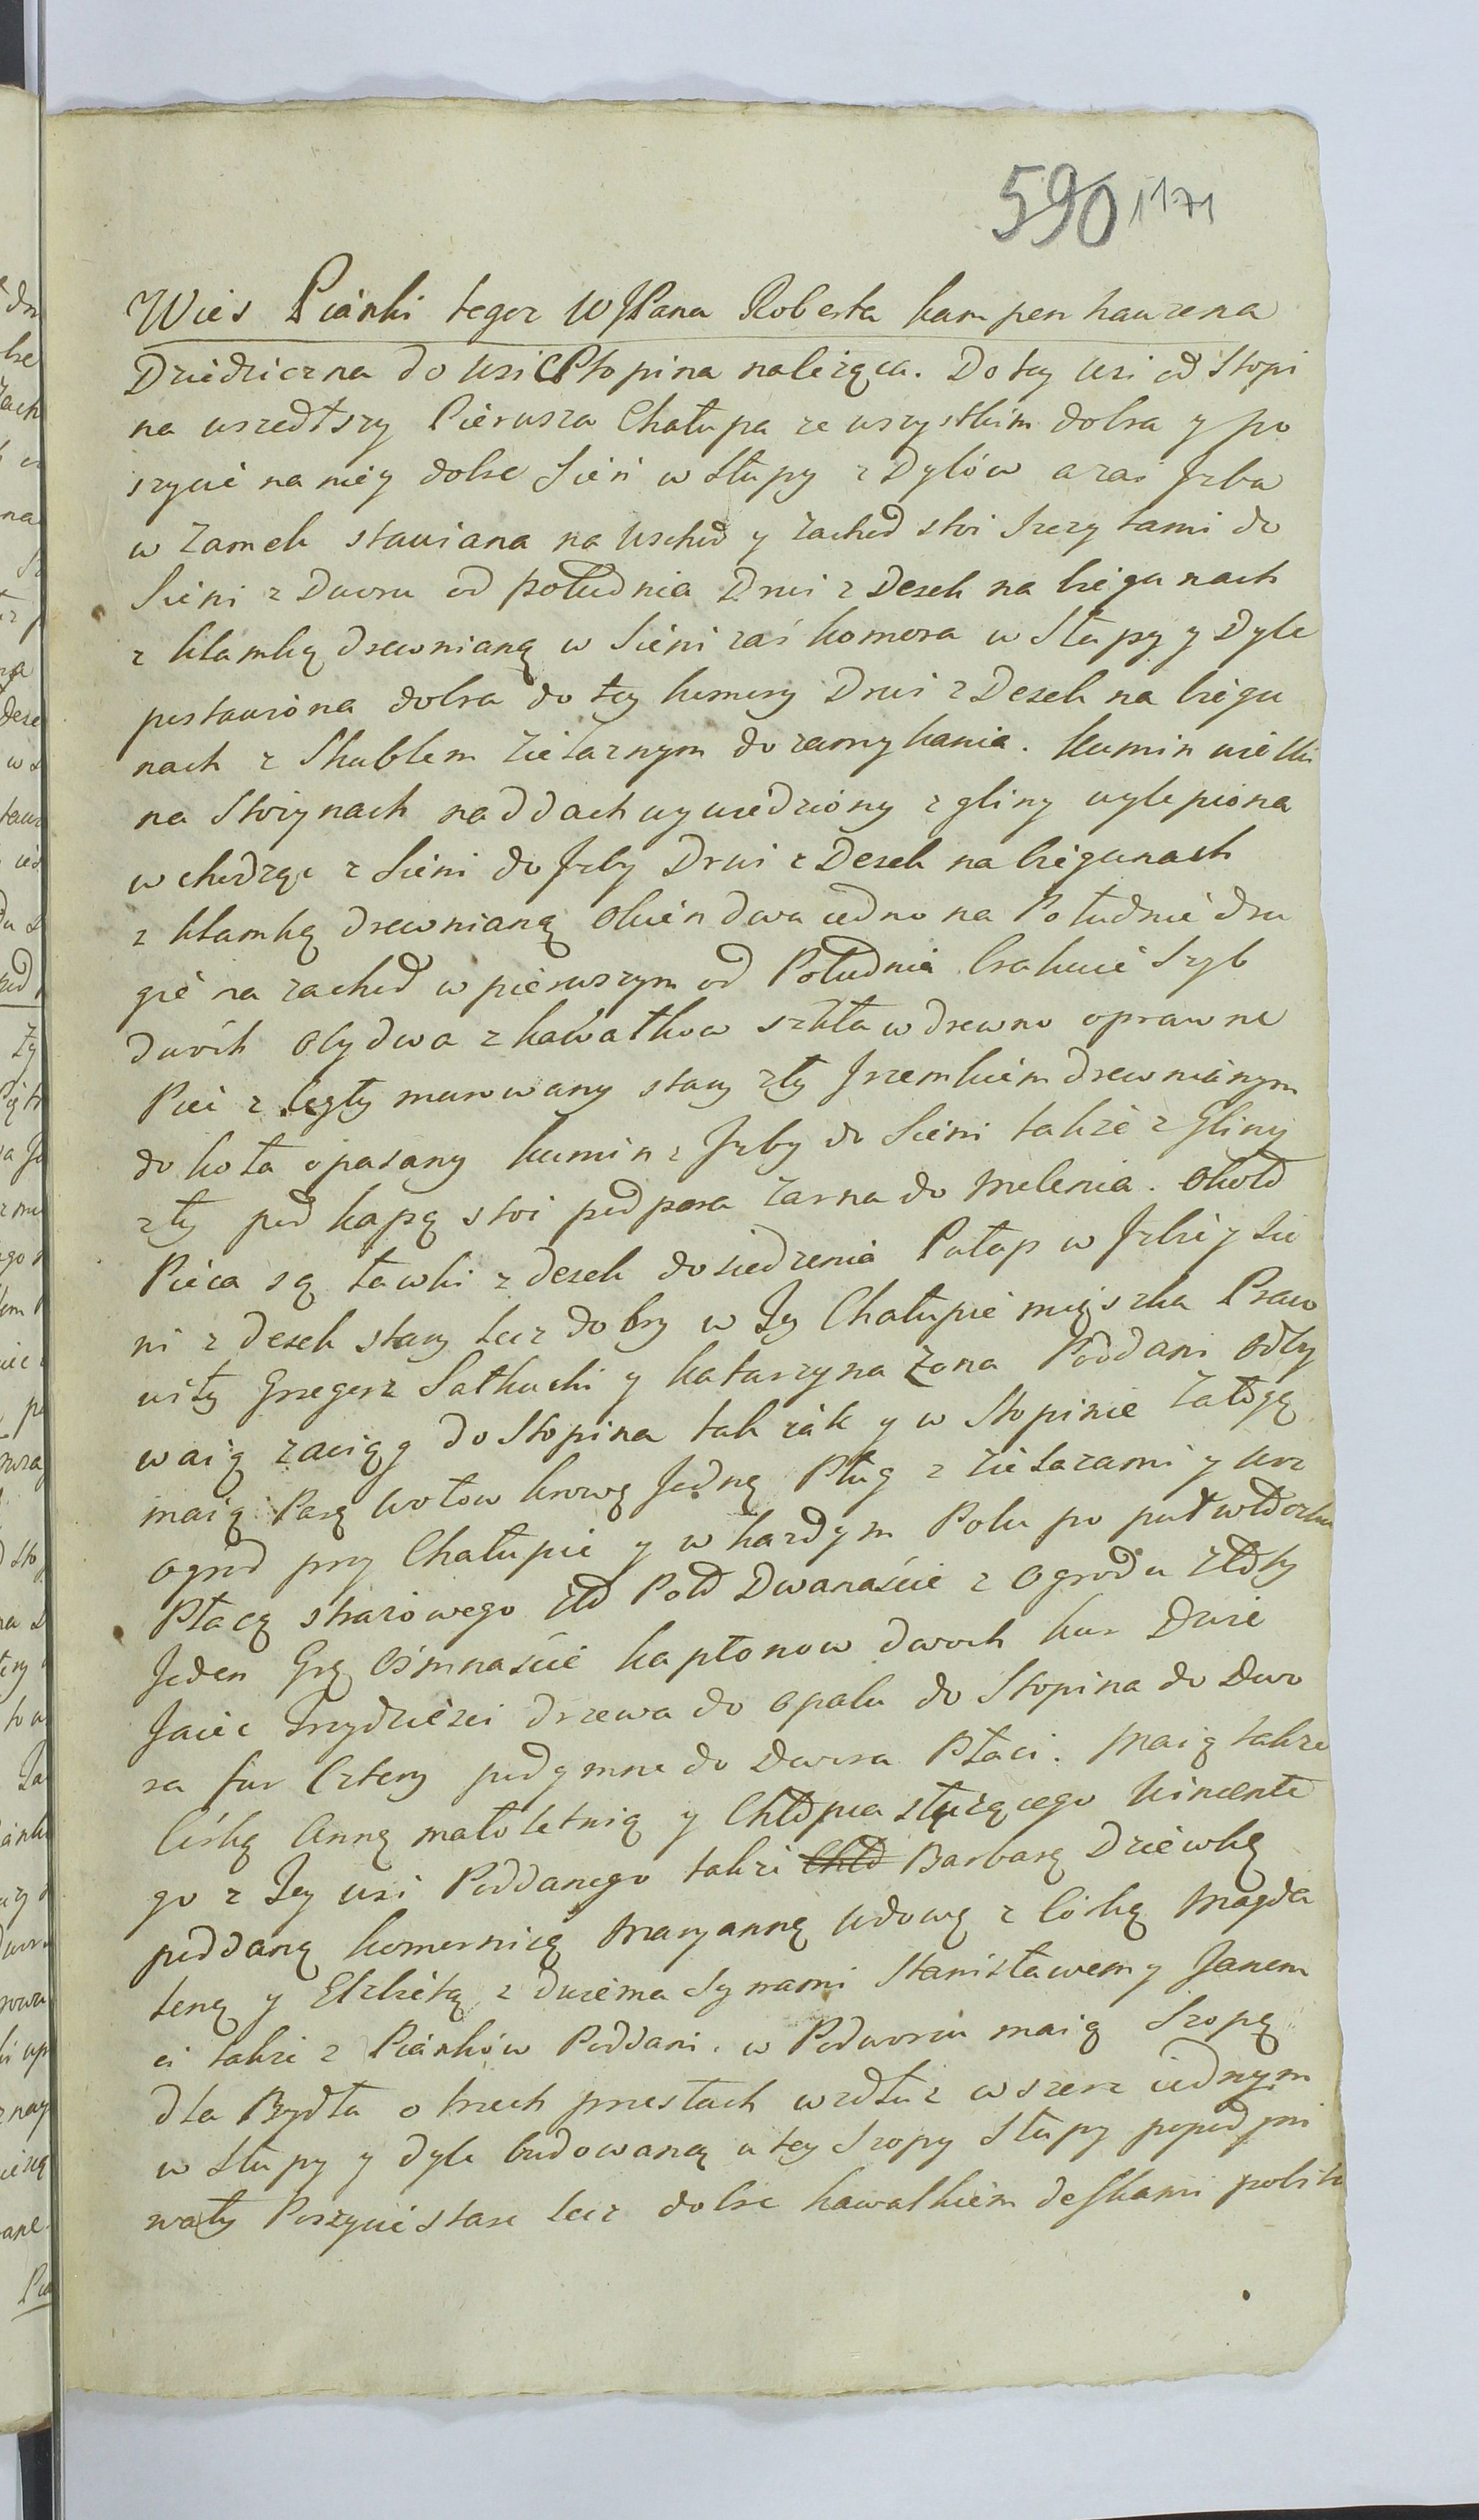 590 1171
Wieś Pianki tegoż WJPana Roberta kampenhauzena
Dziedziczna do wsi Stopina należąca. Do tey wsi od Stopi
na wszedłszy Pierwsza Chałupa ze wszystkim dobra y po
szycie na niey dobre Sień w słupy z Dylów a zaś Jzba
w Zamek stawiana na wschod y zachod stoi Szczytami do
Sieni z Dworu od południa Drzwi z Desek na biegunach
z klamką drewnianą w Sieni zaś komora w Słupy y Dyle
postawiona dobra do tey komory Drzwi z Desek na biegu
nach z Skublem żelaznym do zamykania. kumin wielki
na Stożynach nad dach wywiedziony z gliny wylepiona
wchodząc z Sieni do Jzby Drzwi z Desek na biegunach
z klamką drewnianą okien dwa iedno na Południe dru
gie na zachod w pierwszym od Południa brakuie Szyb
dwóch obydwa z kawałkow szkła w drewno oprawne
Piec z Cegły murowany stary zły Jrzemkiem drewnianym
do koła opasany kumin z Jzby do Sieni także z Gliny
zły pod kapą stoi podpora żarna do Melenia. Okoł
Pieca są Ławki z desek do siedzenia Pułap w Jzbie y Sie
ni z desek stary lecz dobry w Tey Chałupie mięszka Praco
wity Grzegorz Satkucki y katarzyna żona Poddani odby
waią zaciąg do Stopina tak iák y w Stopinie załogę
maią Parę wołow krowę Jedną Pług z żelazami y woz
ogrod przy Chałupie y w kazdym Polu po puł włoczku
Płacą strażowego zło Poł Dwanaście z Ogrodu złoty
Jeden Grą Ośmnaście kapłonow dwoch kur Dwie
Jaiec Trzydzieści drzewa do opału do Stopina do Dwo
ra fur Cztery podymne do dwora Płaci. Maią także
Córkę Annę małoletnią y Chłopca służącego Wincente
go z Tey wsi Poddanego także Chło Barbarę Dziewkę
poddaną komornicę Maryannę wdowę z Córką Magda
leną y Elżbietą z dwiema Synami Stanisławem y Janem
ci także z Pianków Poddani. w Podworzu maią Szopę
dla Bydła o trzech przesłach wzdłuż wszerz iednym
w Słupy y dyle budowaną u tey Szopy Słupy popod
wały Poszycie stare lecz dobre kawałkiem deskami pobite